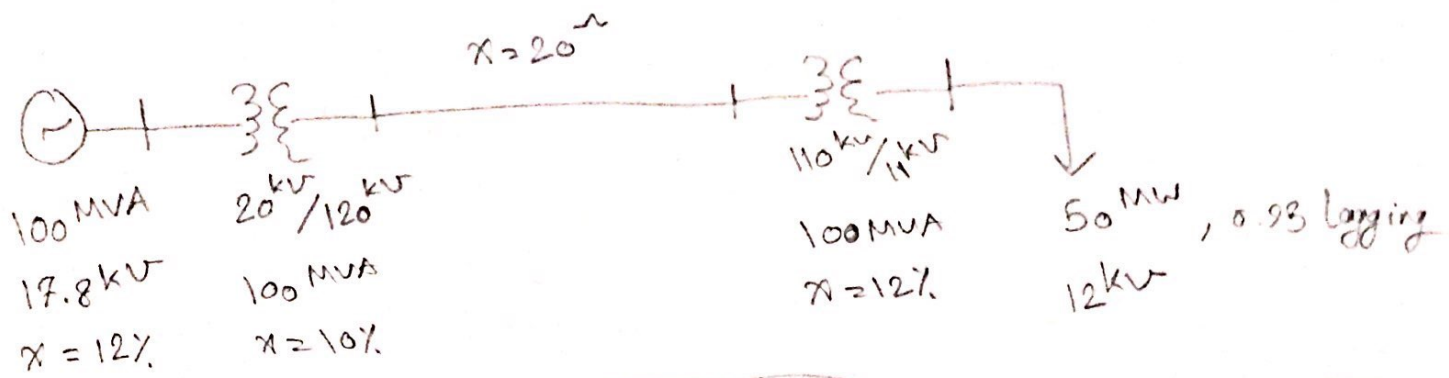 x=20Ω
100 MVA
17.8 kV
x=12%
20 kV/120 kV
100 MVA
x=10%
110 kV/11 kV
100 MVA
x=12%
50 MW, 0.93 lagging
12 kV